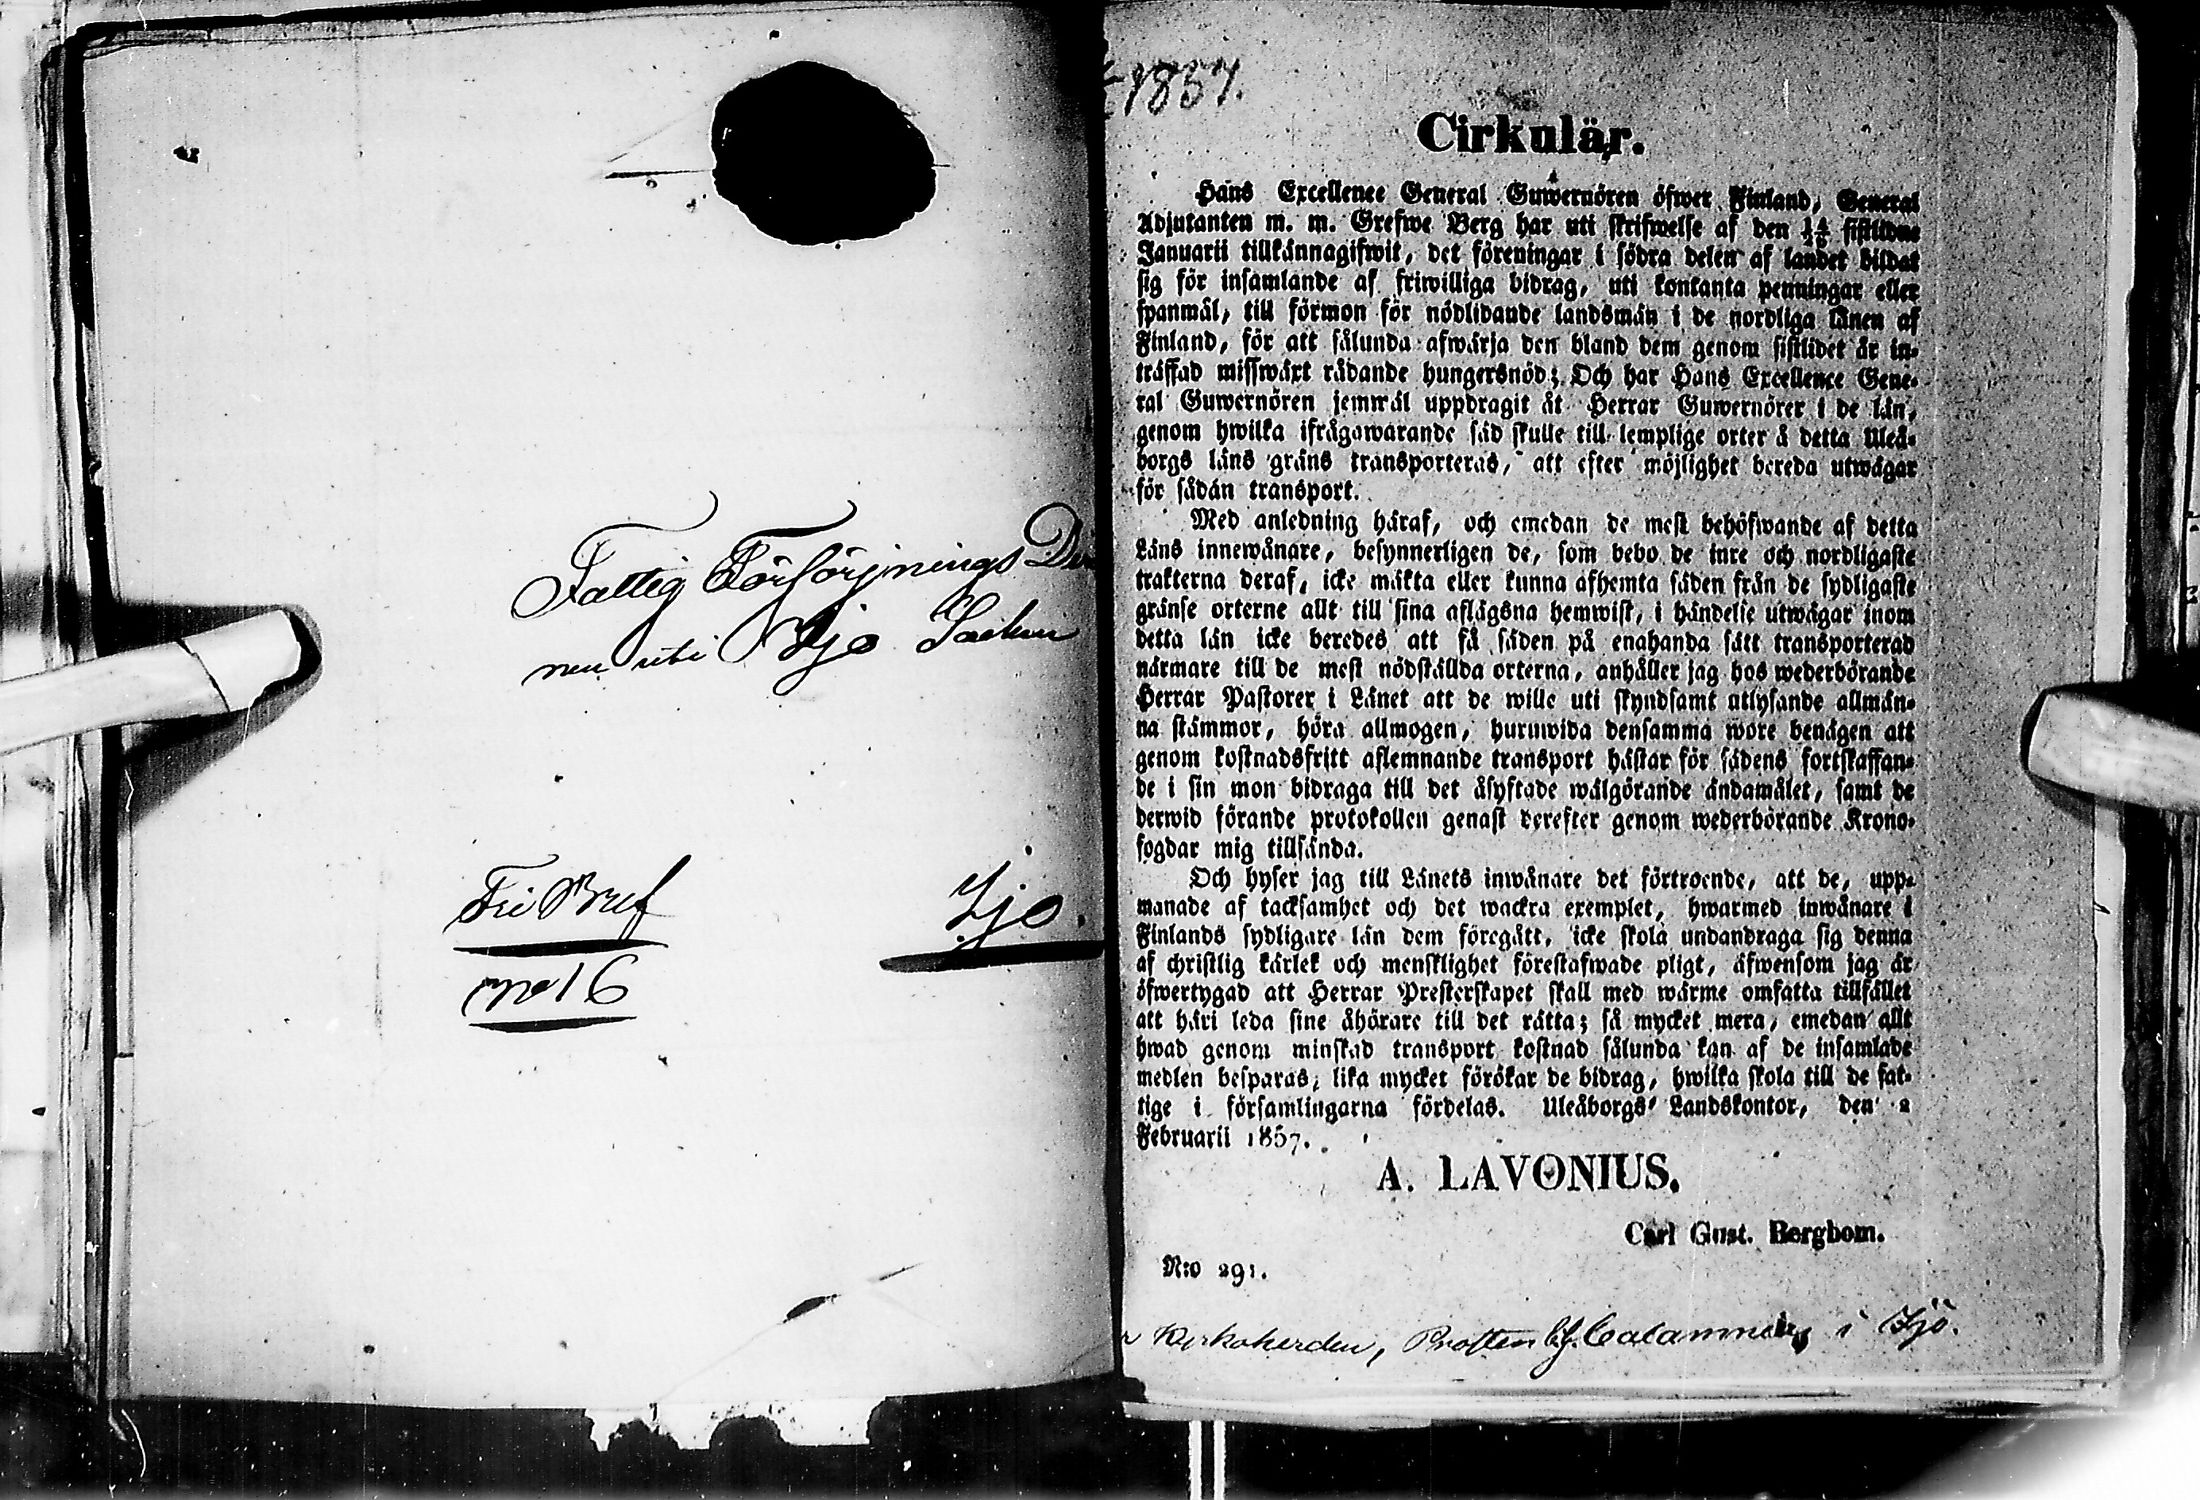 Fattig Försörjnings
nen uti Ijo Socken
Fri Bref
Ijo.
no 16
1857.
Cirkulär.
Hans Excellence General Guwernören öfwer Finland, General
Adjutanten m. m. Grefwe Berg har uti skrifwelse af den sistlidne
Januarii tillkännagifwit, det föreningar i södra delen af landet bildat
sig för insamlande af friwilliga bidrag, uti kontanta penningar eller
spanmål, till förmon för nödlidande landsmän i de nordliga länen af
Finland, för att sålunda afwärja den bland dem genom sistlidet år in-
träffad misswäxt rådande hungersnöd; Och har Hans Excellence Gene-
ral Guwernören jemwäl uppdragit åt Herrar Guwernörer i de län,
genom hwilka ifrågawarande säd skulle till lemplige orter å detta Uleå-
borgs läns gräns transporteras, att efter möjlighet bereda utwägar
för sådan transport.
Med anledning häraf, och emedan de mest behöfwande af detta
Läns innewånare, besynnerligen de, som bebo de inre och nordligaste
trakterna deraf, icke mäkta eller kunna afhemta säden från de sydligaste
gränse orterne allt till sina aflägsna hemwist, i händelse utwägar inom
detta län icke beredes att få säden på enahanda sätt transporterad
närmare till de mest nödställda orterna, anhåller jag hos wederbörande
Herrar Pastorer i Länet att de wille uti skyndsamt utlysande allmän-
na stämmor, höra allmogen, huruwida densamma wore benägen att
genom kostnadsfritt aflemnande transport hästar för sädens fortskaffan-
de i sin mon bidraga till det åsyftade wälgörande ändamålet, samt de
derwid förande protokollen genast derefter genom wederbörande Krono-
fogdar mig tillsända.
Och hyser jag till Länets inwånare det förtroende, att de, upp-
manade af tacksamhet och det wackra exemplet, hwarmed inwånare i
Finlands sydligare län dem föregått, icke skola undandraga sig denna
af christlig kärlek och mensklighet förestafwade pligt, äfwensom jag är
öfwertygad att Herrar Presterskapet skall med wärme omfatta tillfället
att häri leda sine åhörare till det rätta; så mycket mera, emedan allt
hwad genom minskad transport kostnad sålunda kan af de insamlade
medlen besparas, lika mycket förökar de bidrag, hwilka skola till de fat-
tige i församlingarna fördelas. Uleåborgs Landskontor, den 2
Februarii 1857.
A. LAVONIUS.
Carl Gust. Bergbom.
N:o 291.
Kyrkoherden, Prosten Calamnius i Ijo.